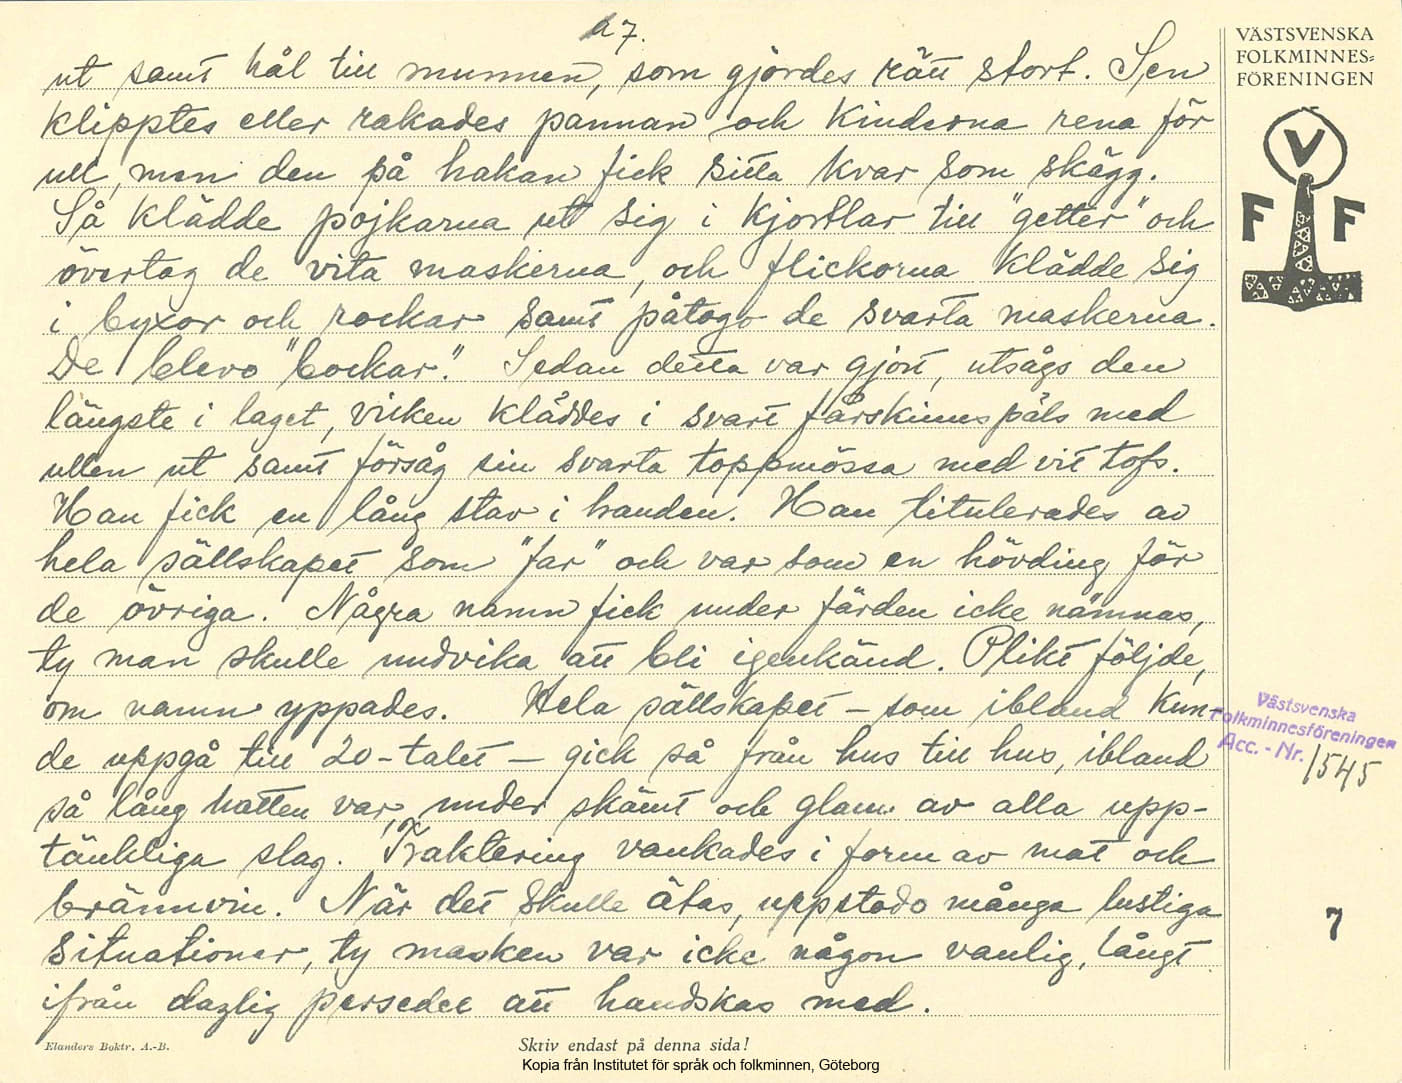 a 7.
ut samt hål till munnen, som gjordes rätt stort. Sen
klipptes eller rakades pannan och kinderna rena för
ull, men den på hakan fick sitta kvar som skägg.
Så klädde pojkarna ut sig i kjortlar till "getter" och
övertog de vita maskerna, och flickorna klädde sig
i byxor och rockar samt påtogo de svarta maskerna.
De blevo "bockar". Sedan detta var gjort, utsågs den
längste i laget, vilken kläddes i svart fårskinnspäls med
ullen ut samt försåg sin svarta toppmössa med vit tofs.
Han fick en lång stav i handen. Han titulerades av
hela sällskapet som "far" och var som en hövding för
de övriga. Några namn fick under färden icke nämnas,
ty man skulle undvika att bli igenkänd. Plikt följde,
om namn yppades. Hela sällskapet – som ibland kun-
de uppgå till 20-talet – gick så från hus till hus, ibland
så lång natten var, under skämt och glam av alla upp-
tänkliga slag. Traktering vankades i form av mat och
brännvin. När det skulle ätas, uppstodo många lustiga
situationer, ty masken var icke någon vanlig, långt
ifrån daglig persedel att handskas med.
Elanders Boktr. A.-B.
Skriv endast på denna sida!
Kopia från Institutet för språk och folkminnen, Göteborg
VÄSTSVENSKA
FOLKMINNES-
FÖRENINGEN
V
F F
Västsvenska
Folkminnesföreningen
Acc. - Nr. 1545
7